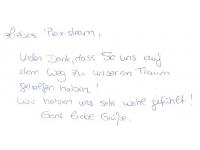 Liebes Praxisteam,
Vielen Dank, dass Sie uns auf
dem Weg zu unserem Traum
geholfen haben!
Wir haben uns sehr wohl gefühlt!
Ganz liebe Grüße.